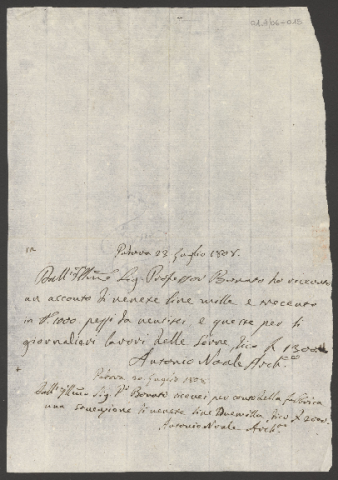 Padova 23 Luglio 1808.
Dall'Illmo Sig. Professor Bonato ho ricevuto
un acconto di venete lire mille e trecento
in N. 1000, pezzi da venti e queste per li
giornalieri lavori delle Serre, dico £ 1300
Antonio Noale Arch.
Padova 30 Luglio 1808
Dall'Illmo Sig. Pr. Bonato ricevei per conto della fabbrica
una sovvenzione di venete lire Duemilla, dico £ 2000.
Antonio Noale Arch.